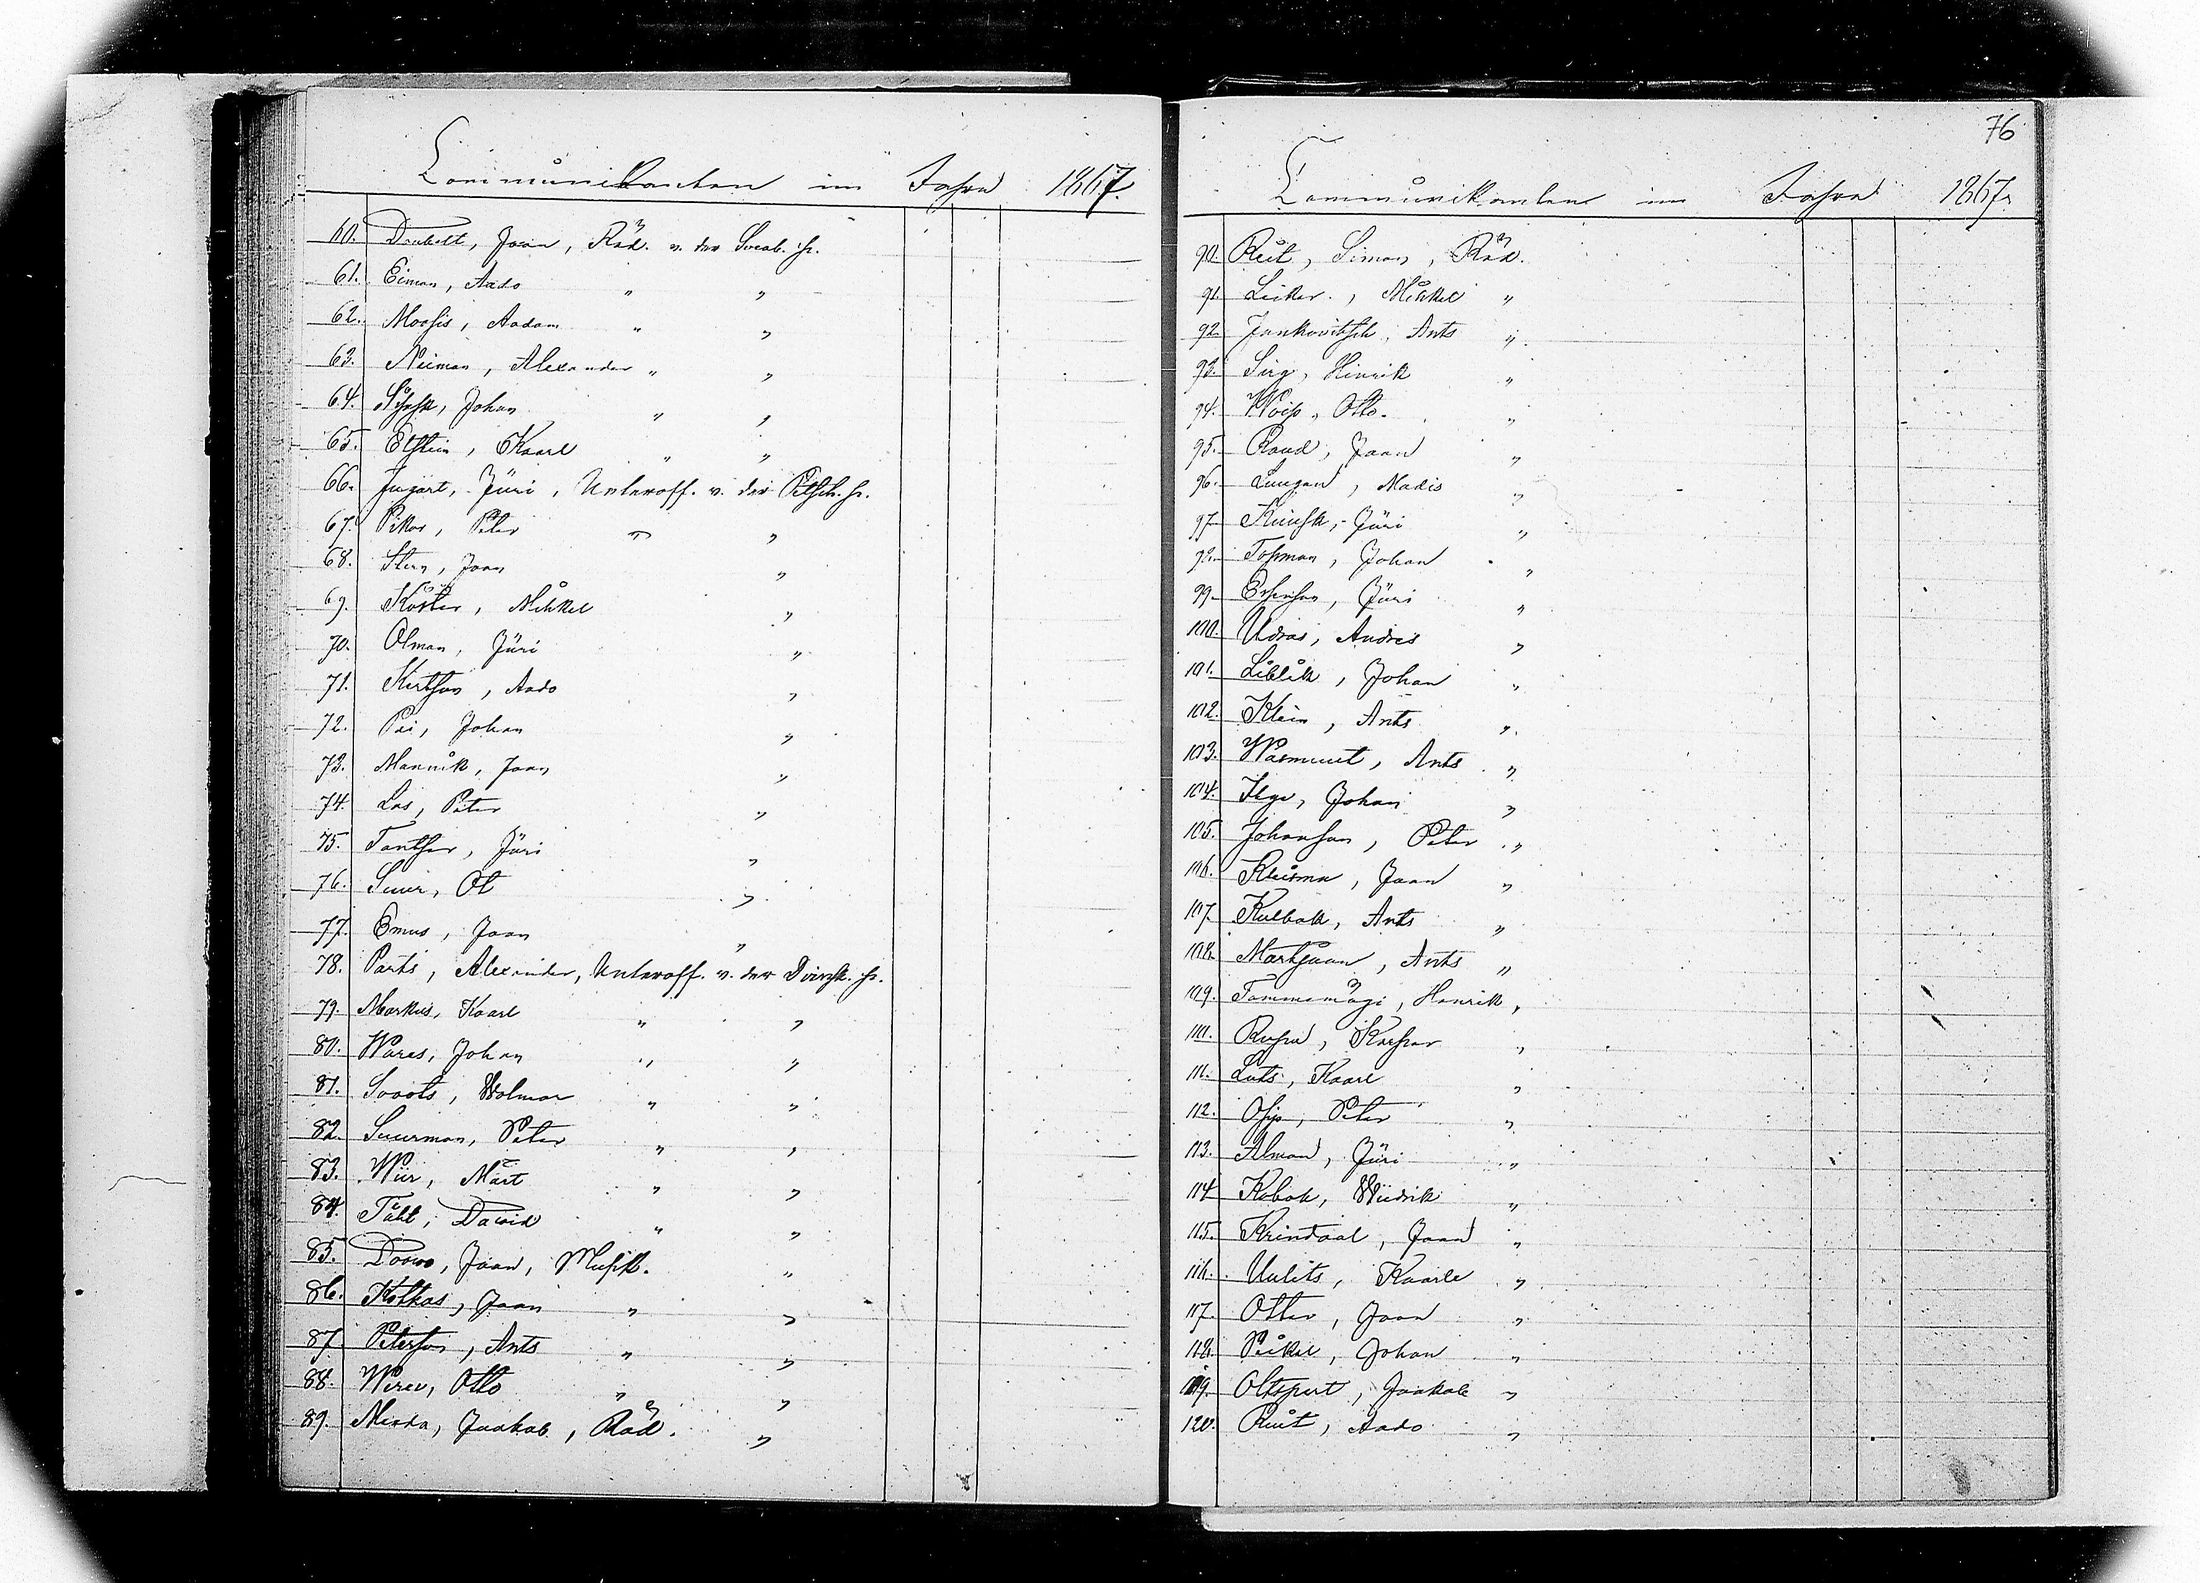 Communikanten im Jahre 1867.
60. Jaan, Räd. v. der Sweab. Fr.
61. Eiman, Aado " "
62. Moosis, Aadam " "
63. Neiman, Alexander " "
64. Johan " "
65. Elstein, Kaarl " "
66. Jugart, Jüri, Unteroff. v. der Fr.
67. Pikar, Peter " "
68. Stern, Jaan "
69. Köster, Mihkel "
70. Olman, Jüri "
71. Kertson, Aado "
72. Pei, Johan "
73. Mannik, Jaan "
74. Las, Peter "
75. Jüri "
76. Suur, Ot "
77. Emus, Jaan "
78. Parts, Alexander, Unteroff. v. der Fr.
79. Markus, Kaarl " "
80. Wares, Johan " "
81. Soots, Wolmar " "
82. Suurman, Peter " "
83. Wiir, Märt " "
84. Tähl, Dawid " "
85. Jaan, Musik. "
86. Kotkas, Jaan " "
87. Peterson, Ants " "
88. Wirev, Otto " "
89. Jaakob, Räd. "
76
Communikanten im Jahre 1867.
90. Reit, Simon, Räd.
91. Mihkel "
92. Jankowitsch, Ants "
93. Sirg, Hinrik "
94. Woiss, Otto. "
95. Raud, Jaan "
96. Madis "
97. Jüri "
98. Tossman, Johan "
99. Jüri "
100. Udras, Andres "
101. Liblik, Johan "
102. Klein, Ants "
103. Wasmuut, Ants "
104. Ilge, Johan "
105. Johanson, Peter "
106. Jaan "
107. Kulbak, Ants "
108. Martson, Ants "
109. Tammemägi, Hanrik "
110. Kaspar "
111. Luts, Kaarl "
112. Osip, Peter "
113. Alman, Jüri "
114. Kobak, Wiidrik "
115. Krindaal, Jaan "
116. Uulits, Kaarle "
117. Otter, Jaan "
118. Peikel, Johan "
119. Jaakob "
120. Ruut, Aado "